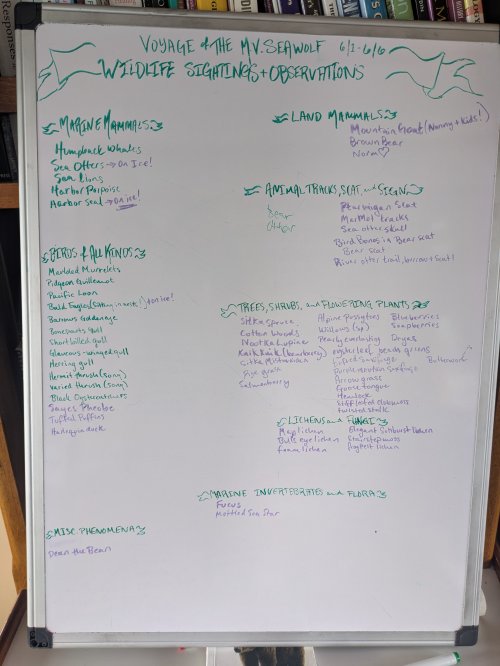 Responses
VOYAGE of THE M.V. SEAWOLF 6/1-6/6
WILDLIFE SIGHTINGS + OBSERVATIONS
MARINE MAMMALS
Humpback Whales
Sea Otters → On Ice!
Sea Lions
Harbor Porpoise
Harbor Seal → On ice!
LAND MAMMALS
Mountain Goat (Nanny + kids!)
Brown Bear
Norm ♡
ANIMAL TRACKS, SCAT, and SIGN
Bear
Otter
Ptarmigan Scat
Marmot tracks
Sea otter skull
Bird Bones in Bear scat
Bear scat
River otter trail, burrow + scat!
BIRDS of ALL KINDS
Marbled Murrelets
Pidgeon Guillemot
Pacific Loon
Bald Eagles (Sitting in nest) → on ice!
Barrows Goldeneye
Bonaparts gull
Short billed gull
Glaucous-winged gull
Herring gull
Hermit thrush (song)
Varied thrush (song)
Black Oystercatchers
Says Pheobe
Tufted Puffins
Harlequin duck
TREES, SHRUBS, and FLOWERING PLANTS
Sitka spruce
Cotton Woods
Nootka Lupine
Kinik Kinik (bearberry)
Rye grass
Salmonberry
Willows (sp)
Pearly everlasting
Arrow grass
Goose tongue
Hemlock
twisted stalk
Blueberries
Soapberries
Dryas
Butterwort
LICHENS and FUNGI
Map lichen
Bull's eye lichen
Foam lichen
Elegant Sunburst lichen
Stairstep moss
Frog Pelt lichen
MARINE INVERTEBRATES and FLORA
Fucus
Mottled Sea Star
MISC. PHENOMENA
Dean the Bean